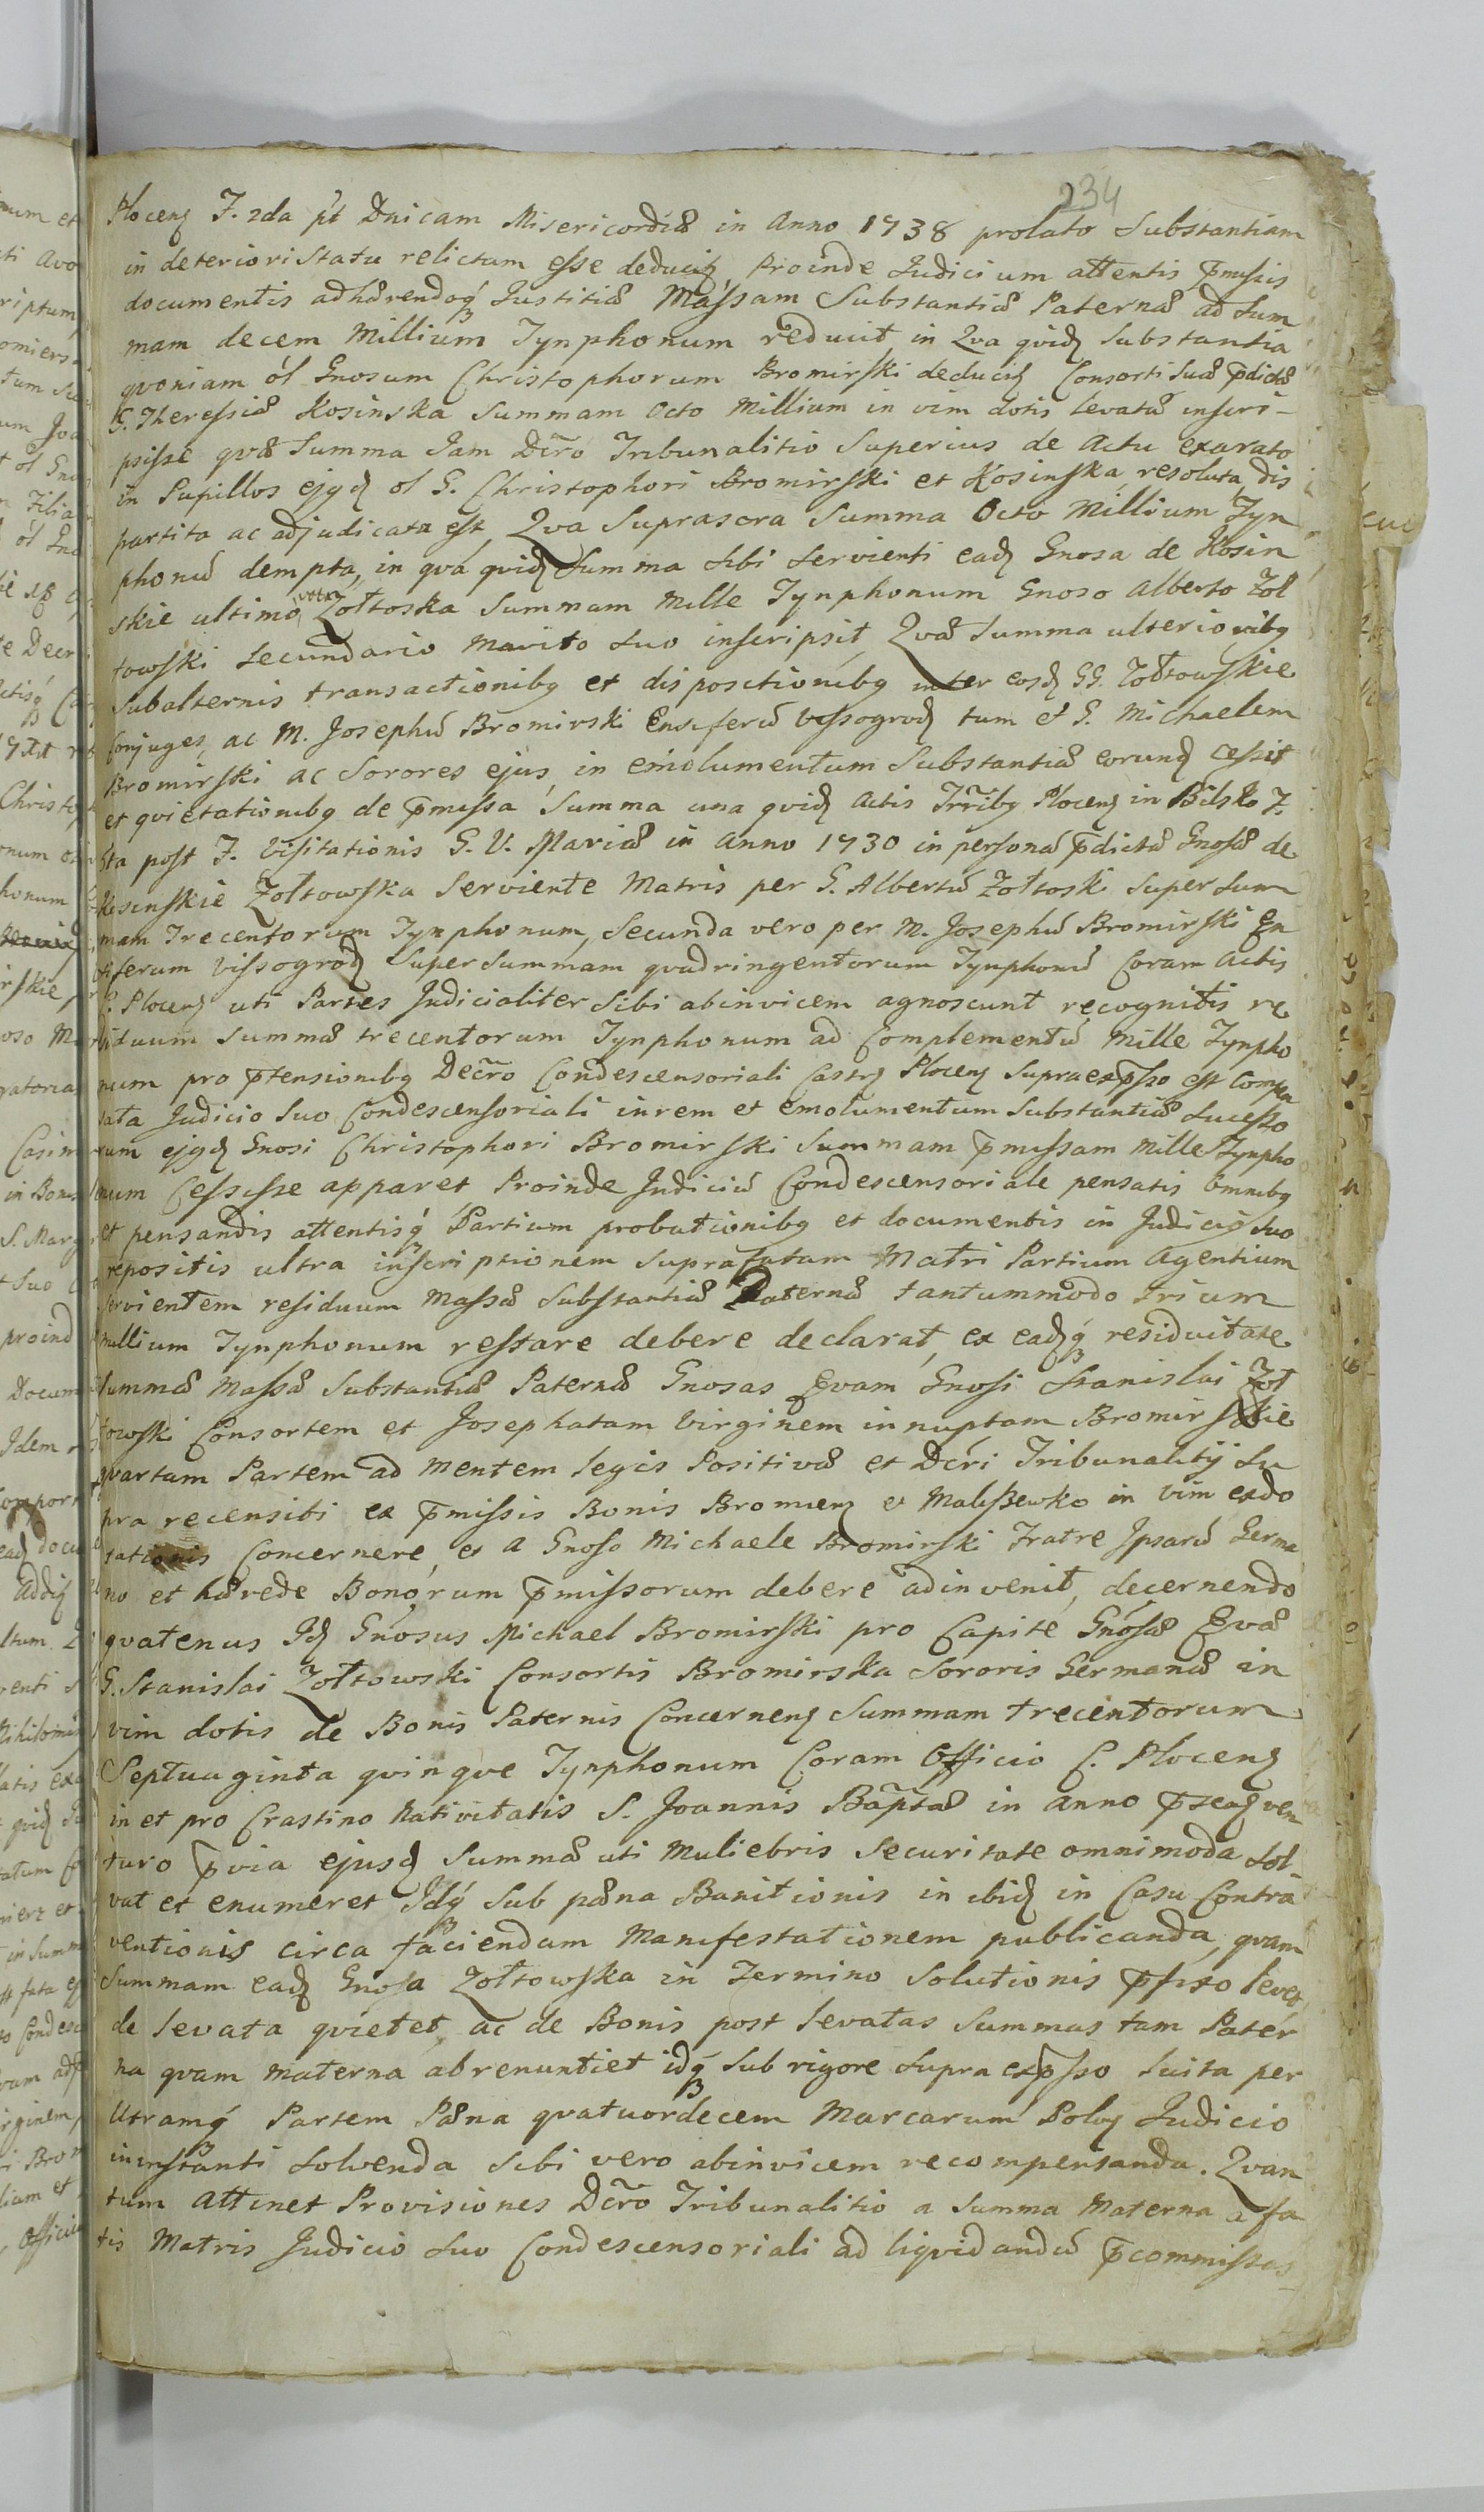 234
Plocen̄ F. 2da p̄t Dnicam Misericordiæ in Anno 1738 prolato Substantiam
in deteriori Statu relictum esse deducit̄, Proinde Judicium attentis p̄missis
documentis adhærendoq́ Justitiæ Massam Substantiæ Paternæ ad Sum
mam decem Millium Tynphonum reducit in Qva qvid̄ Substantia
qvoniam ol Gnosum Christophorum Bromirski deducit̄ Consorti Suæ p̄dictæ
G. Theressiæ Kosinska Summam Octo Millium in vim dotis levatæ inscri-
psisse qvæ Summa Jam Dcr̃o Tribunalitio Superius de Actu exarato
in Pupillos ejq̨d̄ ol G. Christophori Bromirski et Kosinska resoluta, dis
partita ac adjudicata est, Qva Suprascra Summa Octo Millium Tyn
phonũ dempta, in qvá qvid̄ Summa Sibi Servienti ead̄ Gnosa de Kosin
skie ultimo voto Zołtoska Summam Mille Tynphonum Gnoso Alberto Zoł
towski Secundario Marito Suo inscripsit, Qvæ Summa ulterioribq̨
Subalternis transactionibq̨ et dispositionibq̨ inter eosd̄ GG. Zołtowskie
Conjuges, ac M. Josephũ Bromirski Ensiferũ Vissogrod̄ tum et G. Michaelem
Bromirski ac Sorores ejus, in emolumentum Substantiæ eorund̄ cessit
et qvietationibq̨ de p̄missa Summa una qvid̄ Actis Trr̃ibq̨ Plocen̄ in Bilsko F.
5ta post F. Visitationis G. V. Mariæ in Anno 1730 in personá p̄dictæ Gnosæ de
Kosinskie Zołtowska Serviente Matris per G. Albertũ Zołtoski Super Sum
mam Trecentorum Tynphonum, Secunda vero per M. Josephũ Bromirski En
siferum Vissogrod̄ Super Summam qvadringentorum Tynphonũ Coram Actis
C. Plocen̄ uti Partes Judicialiter Sibi abinvicem agnoscunt recognitis re
siduum Summæ trecentorum Tynphonum ad Complementũ Mille Tynpho
num pro p̄tensionibq̨ Decr̃o Condescensoriali Castr̄ Plocen̄ Supraexp̄sso est Compen
sata Judicio Suo Condescensoriali in rem et emolumentum Substantiæ Successo
rum ejq̨d̄ Gnosi Christophori Bromirski Summam p̄missam Mille Tynpho
num Cessisse apparet Proinde Judiciũ Condescensoriale pensatis Omnibq̨
et pensandis attentisq́ Partium probationibq̨ et documentis in Judicio Suo
repositis ultra inscriptionem Suprafatam Matri Partium Agentium
Servientem residuum Massæ Substantiæ Paternæ tantummodo trium
millium Tynphonum restare debere declarat, ex eadq́ residuitate
Summæ Massæ Substantiæ Paternæ Gnosas Evam Gnosi Stanislai Zoł
towski Consortem et Josephatam Virginem innuptam Bromirskie
qvartam Partem ad mentem legis Positivæ et Dcr̃i Tribunalitij Su
pra recensiti ex p̄missis Bonis Bromierz et Maliszewko in vim exdo
tationis Concernere, et a Gnoso Michaele Bromirski Fratre Ipsarũ Germa
no et hærede Bonorum p̄missorum debere adinvenit, decernendo
qvatenus Id̄ Gnosus Michael Bromirski pro Capite Gnosæ Evæ
G. Stanislai Zołtowski Consortis Bromirska Sororis Germanæ in
vim dotis de Bonis Paternis Concernen̄ Summam trecentorum
Septuaginta qvinqve Tynphonum Coram Officio C. Plocen̄
in et pro Crastino Nativitatis S. Joannis Bap̃tæ in anno p̄ seqven
turo p̄via ejusd̄ Summæ uti Muliebris Securitate omnimoda Sol
vat et enumeret Idq́ Sub pæna Banitionis in ibid̄ in Casu Contra
ventionis circa faciendam Manifestationem publicanda, qvam
Summam ead̄ Gnosa Zołtowska in Termino Solutionis p̄fixo levet
de levata qvietet, ac de Bonis post levatas Summas tam Pater
na qvam Materna abrenuntiet idq́ Sub rigore Supra exp̄sso luita per
Utramq́ Partem Pæna qvatuordecem Marcarum Polon̄ Judicio
in instanti Solvenda Sibi vero abinvicem recompensanda. Qvan
tum Attinet Provisiones Dcr̃o Tribunalitio a Summa Materna a fa
tis Matris Judicio Suo Condescensoriali ad liqvidandũ p̄commissas